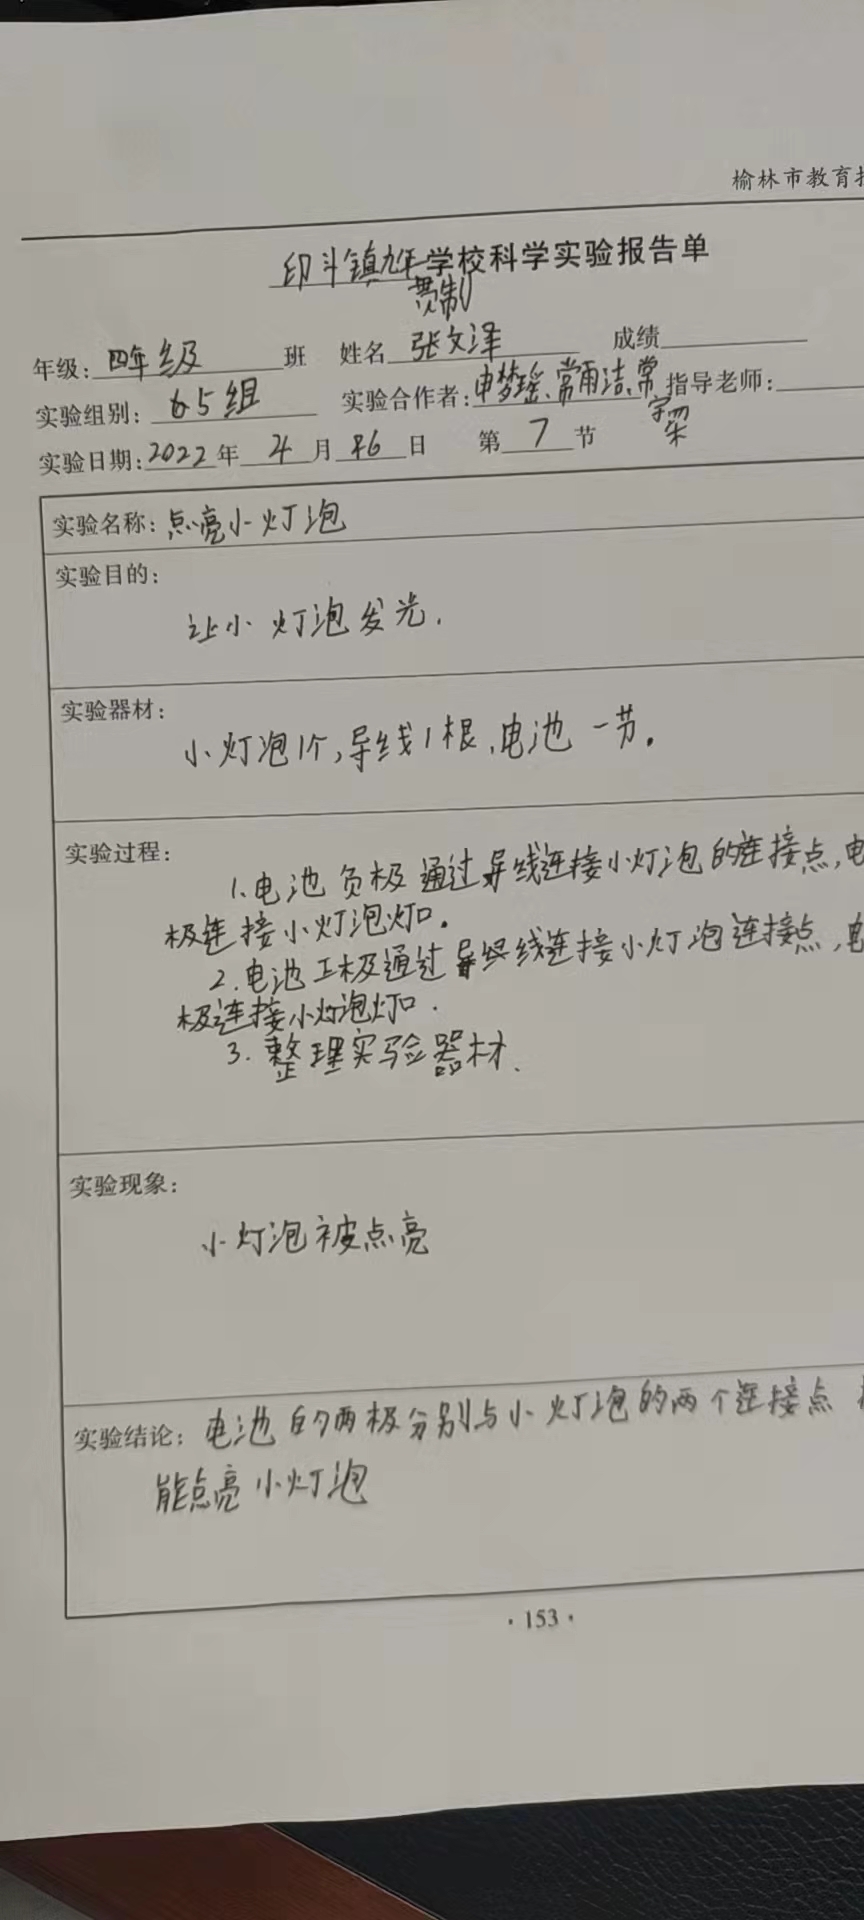 榆林市教育
印斗镇九年学校科学实验报告单
贯制
年级：四年级 班 姓名 张文泽 成绩
实验组别：5组 实验合作者：申梦瑶、常雨洁、常 指导老师：
实验日期：2022年 4月 26日 第 7 节
实验名称：点亮小灯泡
实验目的：
让小灯泡发光.
实验器材：
小灯泡1个,导线1根,电池一节。
实验过程：
1.电池负极通过导线连接小灯泡的连接点,电
极连接小灯泡灯口。
2.电池正极通过导线连接小灯泡连接点,电
极连接小灯泡灯口.
3.整理实验器材.
实验现象：
小灯泡被点亮
实验结论：电池的两极分别与小灯泡的两个连接点
能点亮小灯泡
·153·